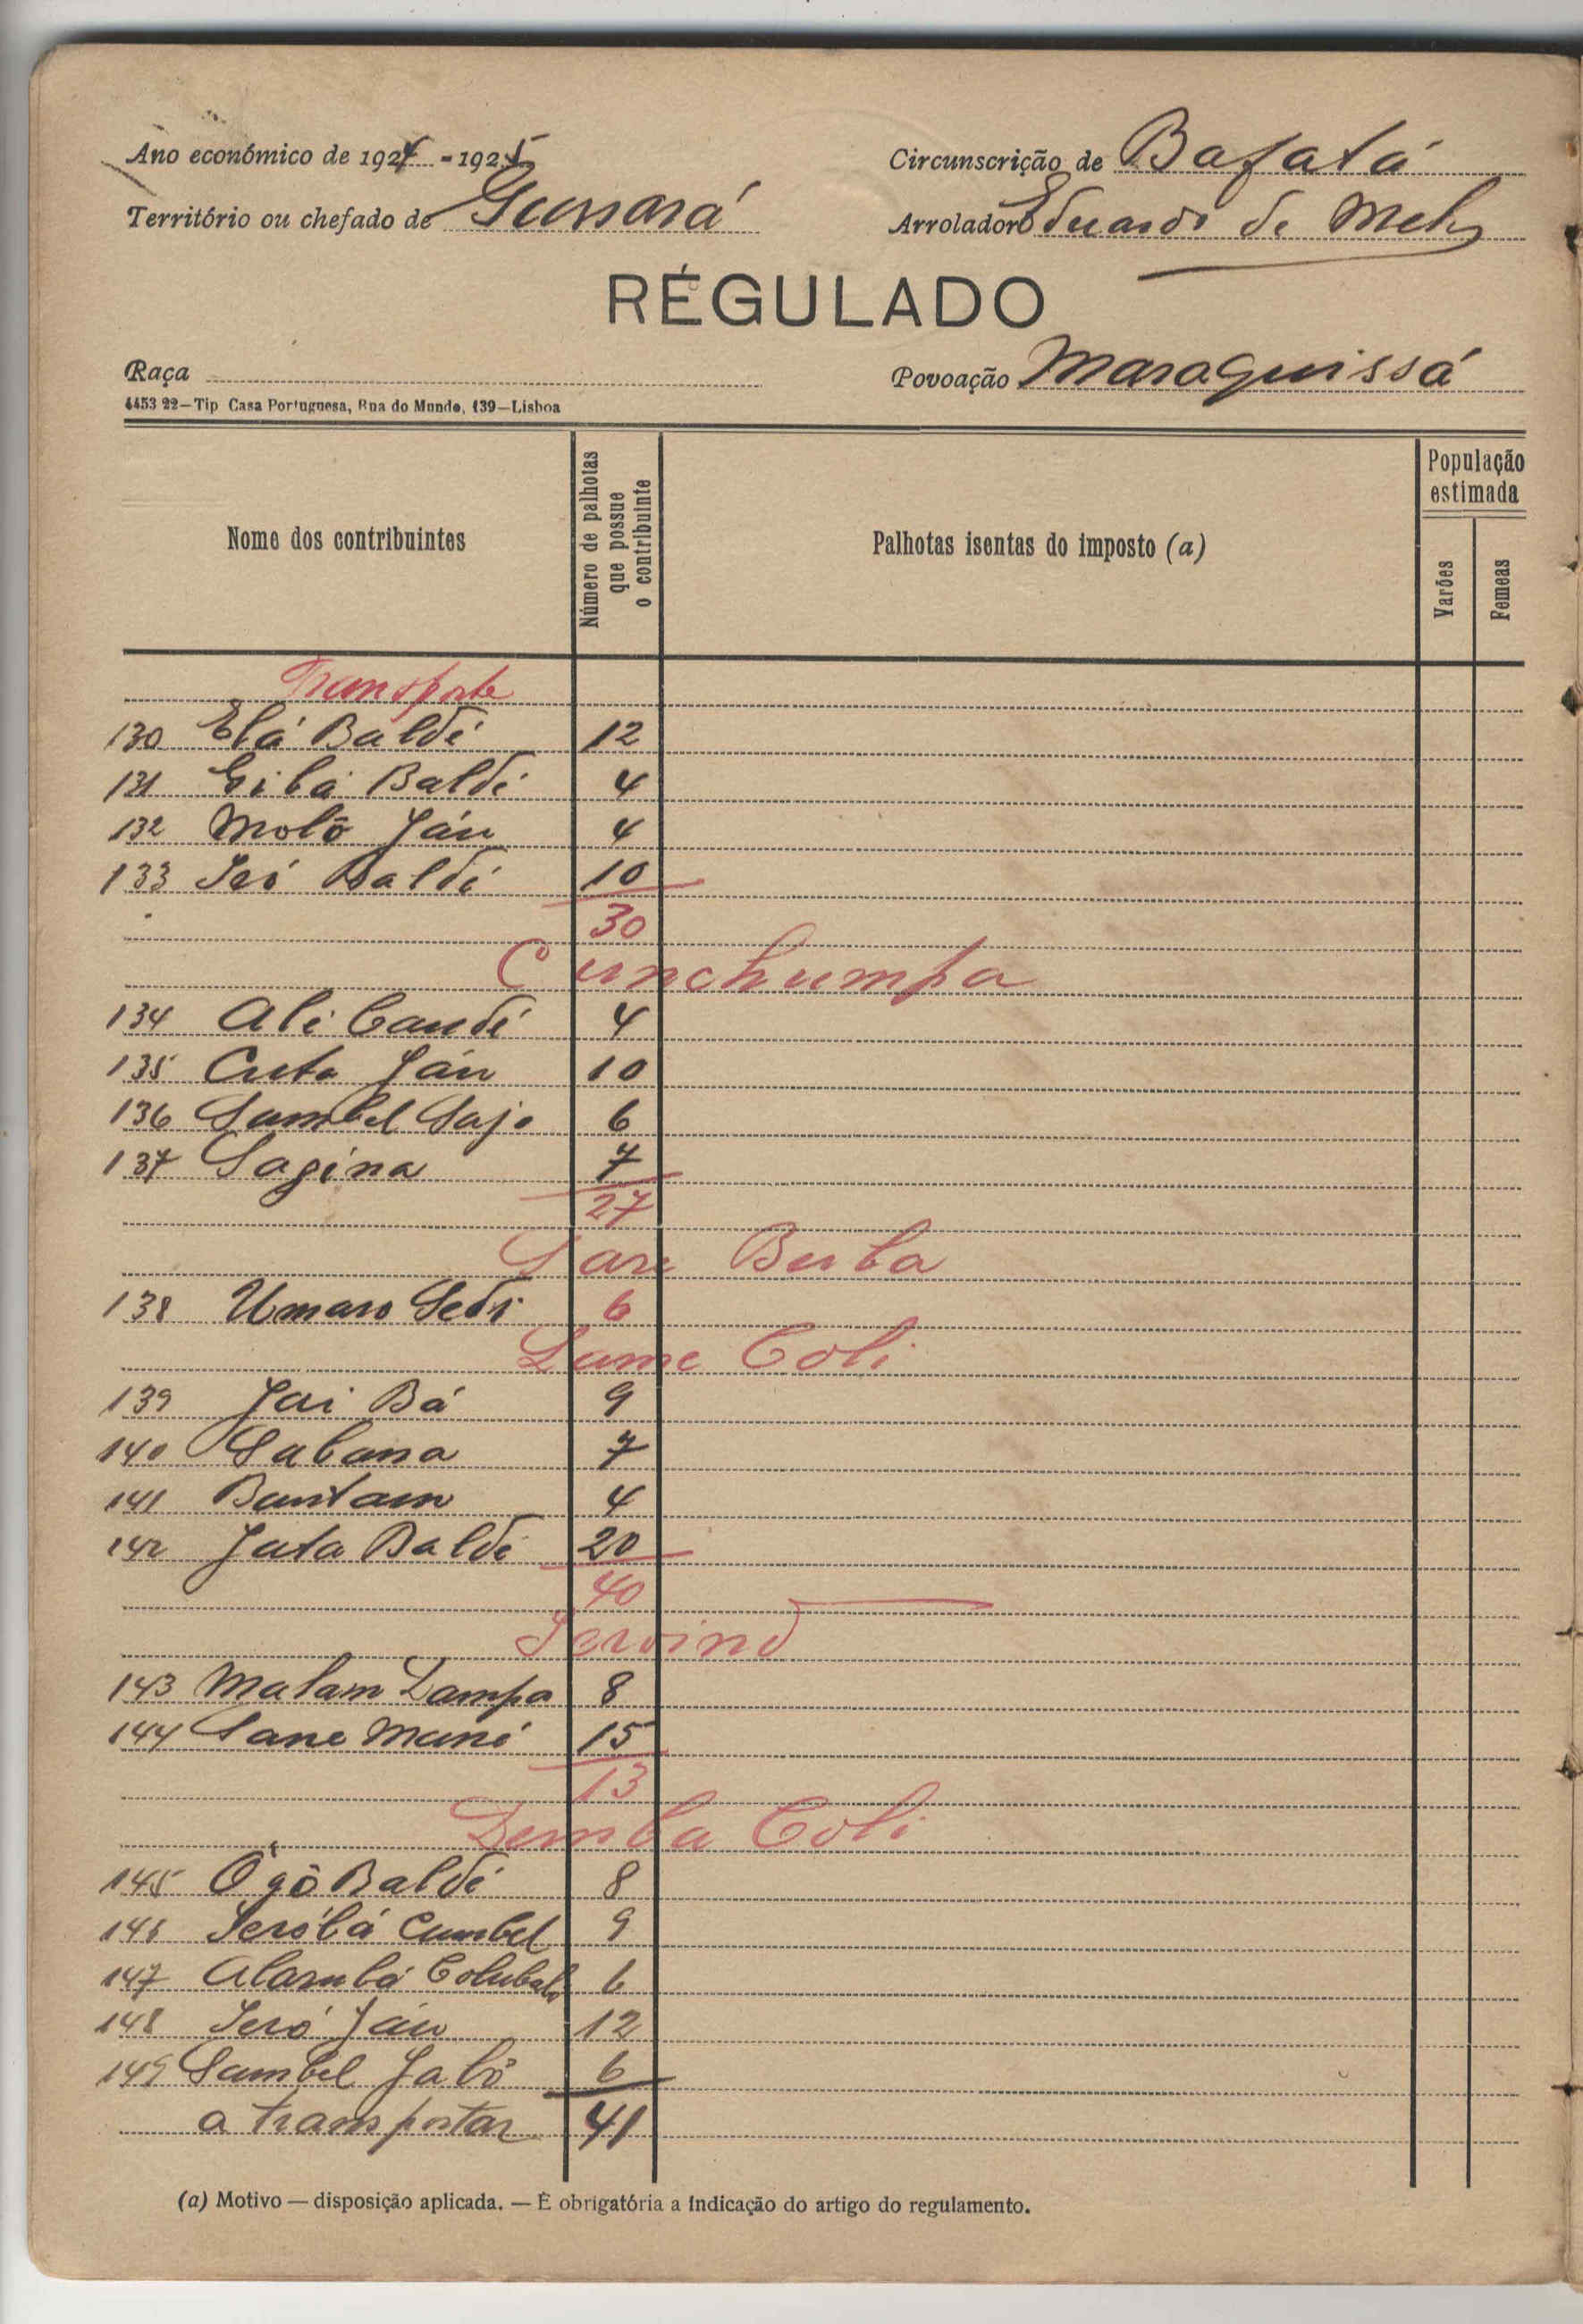 Ano económico de 1924 - 1925
Circunscrição de Bafatá
Território ou chefado de
Arrolador Eduardo de Melo
RÉGULADO
Raça
Povoação Maraquissá
4453 22—Tip Casa Portuguesa, Rua do Mundo, 139—Lisboa
Nome dos contribuintes
Número de palhotas que possue o contribuinte
Palhotas isentas do imposto (a)
População estimada
Varões
Femeas
Transporte
130 Elá Baldé 12
131 Baldé 4
132 Molô Jáu 4
133 Baldé 10
30
Cunchumpa
134 Ali Candé 4
135 Cuta Jáu 10
136 Sambel 6
137 Sagina 7
27
Sare Buba
138 Umaro Sedi 6
Lame Coli
139 Jai Bá 9
140 Sabana 7
141 Bantam 4
142 Jata Baldé 20
40
143 Malam Dampa 8
144 Sane Mané 15
13
Demba Coli
145 Ogô Baldé 8
146 Cumbel 9
147 Colubali 6
148 Seró Jáu 12
149 Sambel Jaló 6
a transportar 41
(a) Motivo — disposição aplicada. — É obrigatória a indicação do artigo do regulamento.